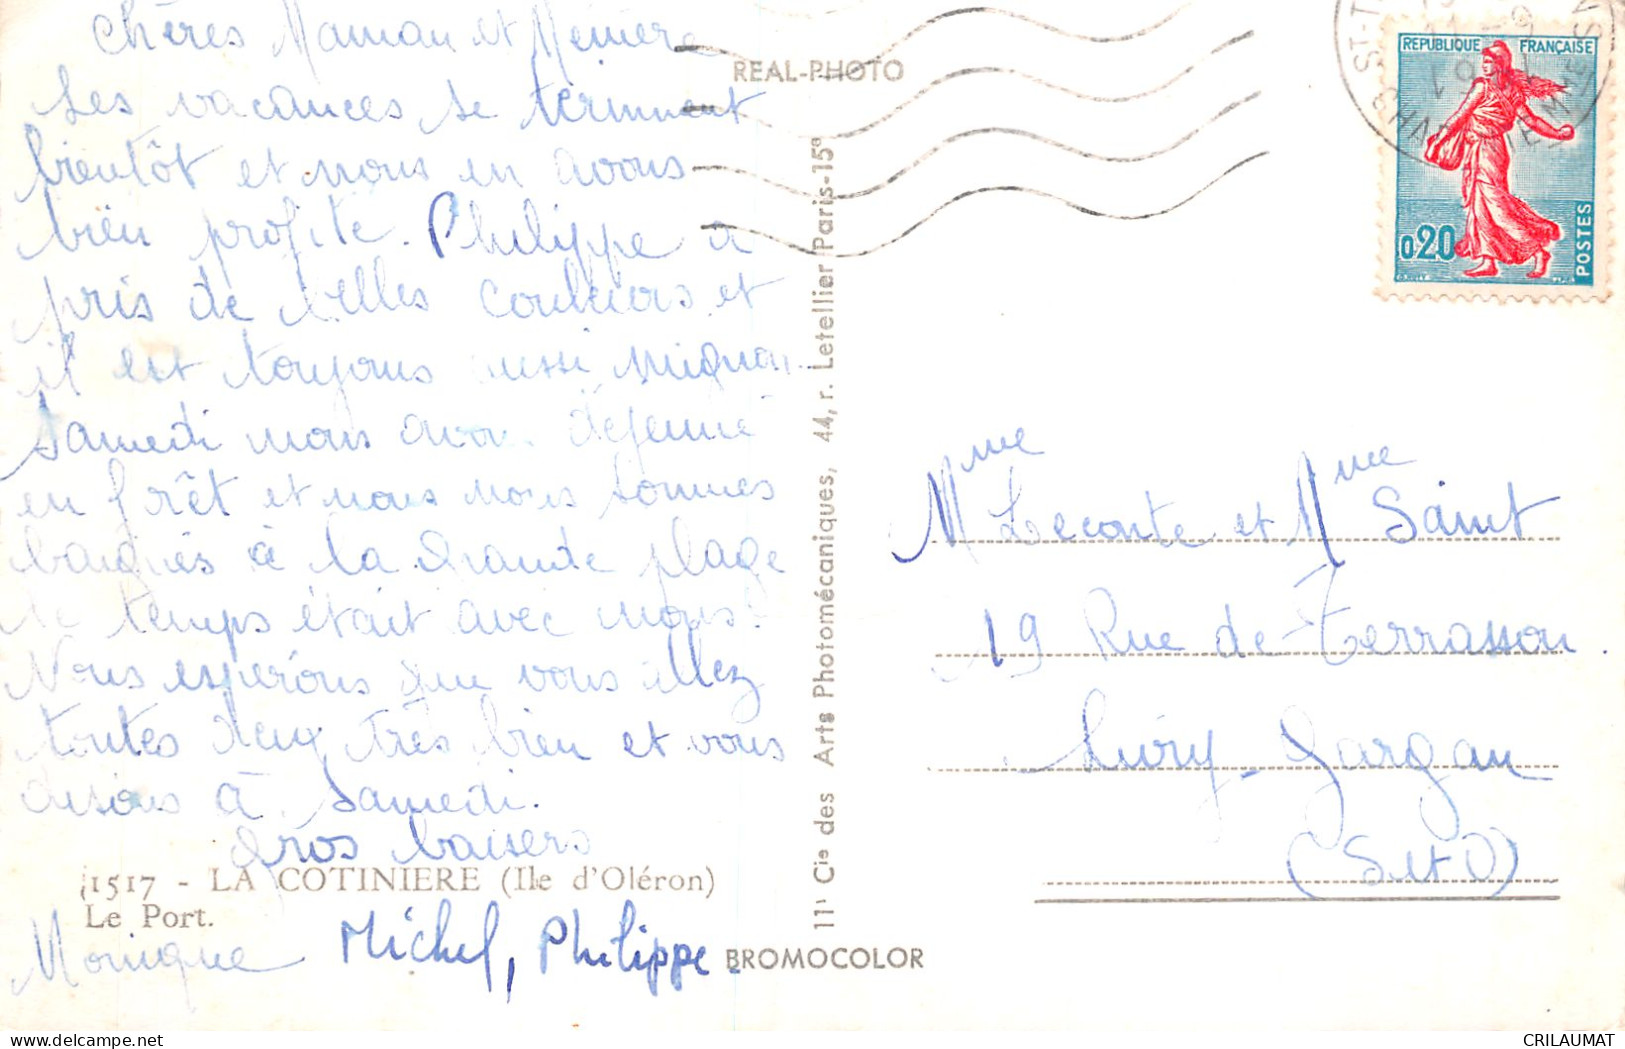 Chères Maman et Mémère
Les vacances se terminent
bientôt et nous en avons
bien profité. Philippe a
pris de belles couleurs et
il est toujours aussi mignon.
Samedi nous avons déjeuné
en forêt et nous nous sommes
baignés à la Grande plage
le temps était avec nous!
Nous espérons que vous allez
toutes deux très bien et vous
disons à Samedi.
Gros baisers
1517 - LA COTINIERE (Ile d'Oléron)
Le Port.
Monique Michel, Philippe.
REAL-PHOTO
11t Cie des Arts Photomécaniques, 44, r. Letellier Paris-15e
BROMOCOLOR
REPUBLIQUE FRANÇAISE
0,20
POSTES
Mme Leconte et Mme Saint
19 Rue de Terrasson.
Livry-Gargan
(S et O)
CRILAUMAT